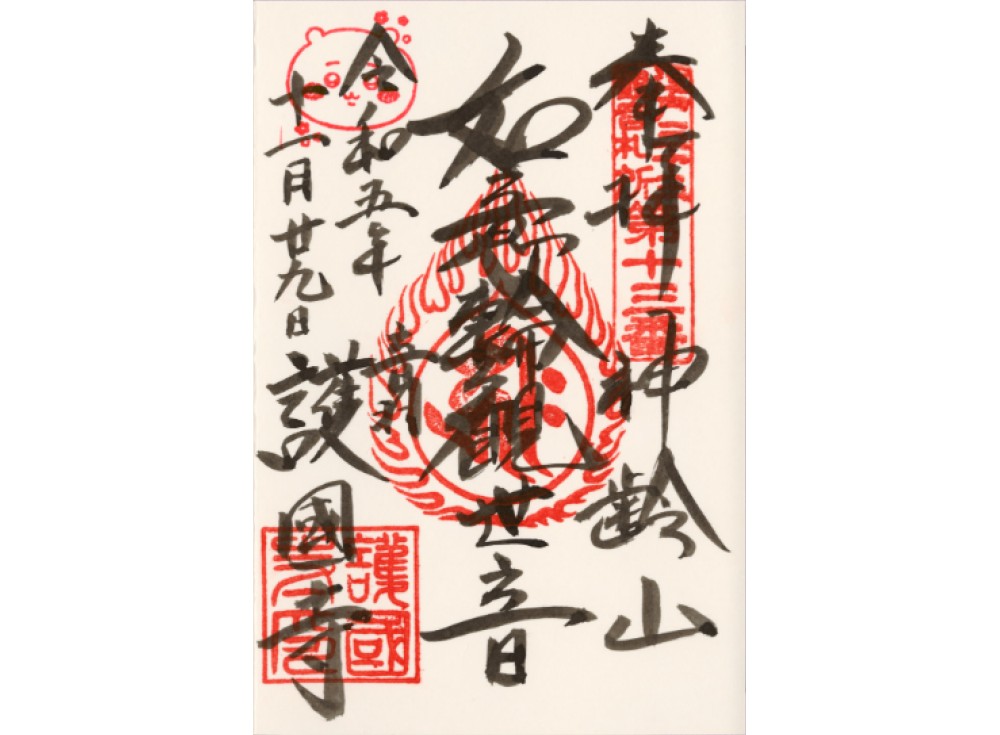 奉拝 神齢山
札所第十三番
如意輪観世音
令和五年
十一月廿九日
音羽
護國寺
護國